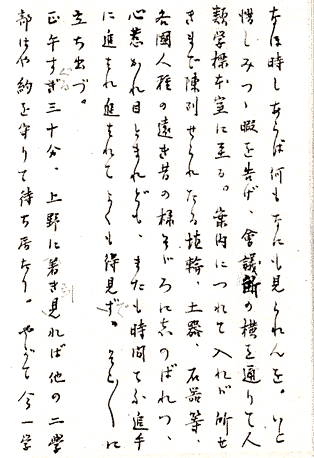 なほ時しあらば何もかにも見られんを。いと
惜しみつゝ暇を告げ、會議所の横を通りて人
類学標本室に至る。案内につれて入れば所せ
きまで陳列せられたる埴輪、土器、石器等、
各國人種の遠き昔の様そゞろにしのばれつゝ、
心惹かれ目とまれども、またも時間てふ追手
に進まれ進まれてよくも得見ず。そこ〳〵に
立ち出づ。
正午すぎ三十分、上野に着き見れば他の二學
部はや約を守りて待ち居たり。やがて今一学